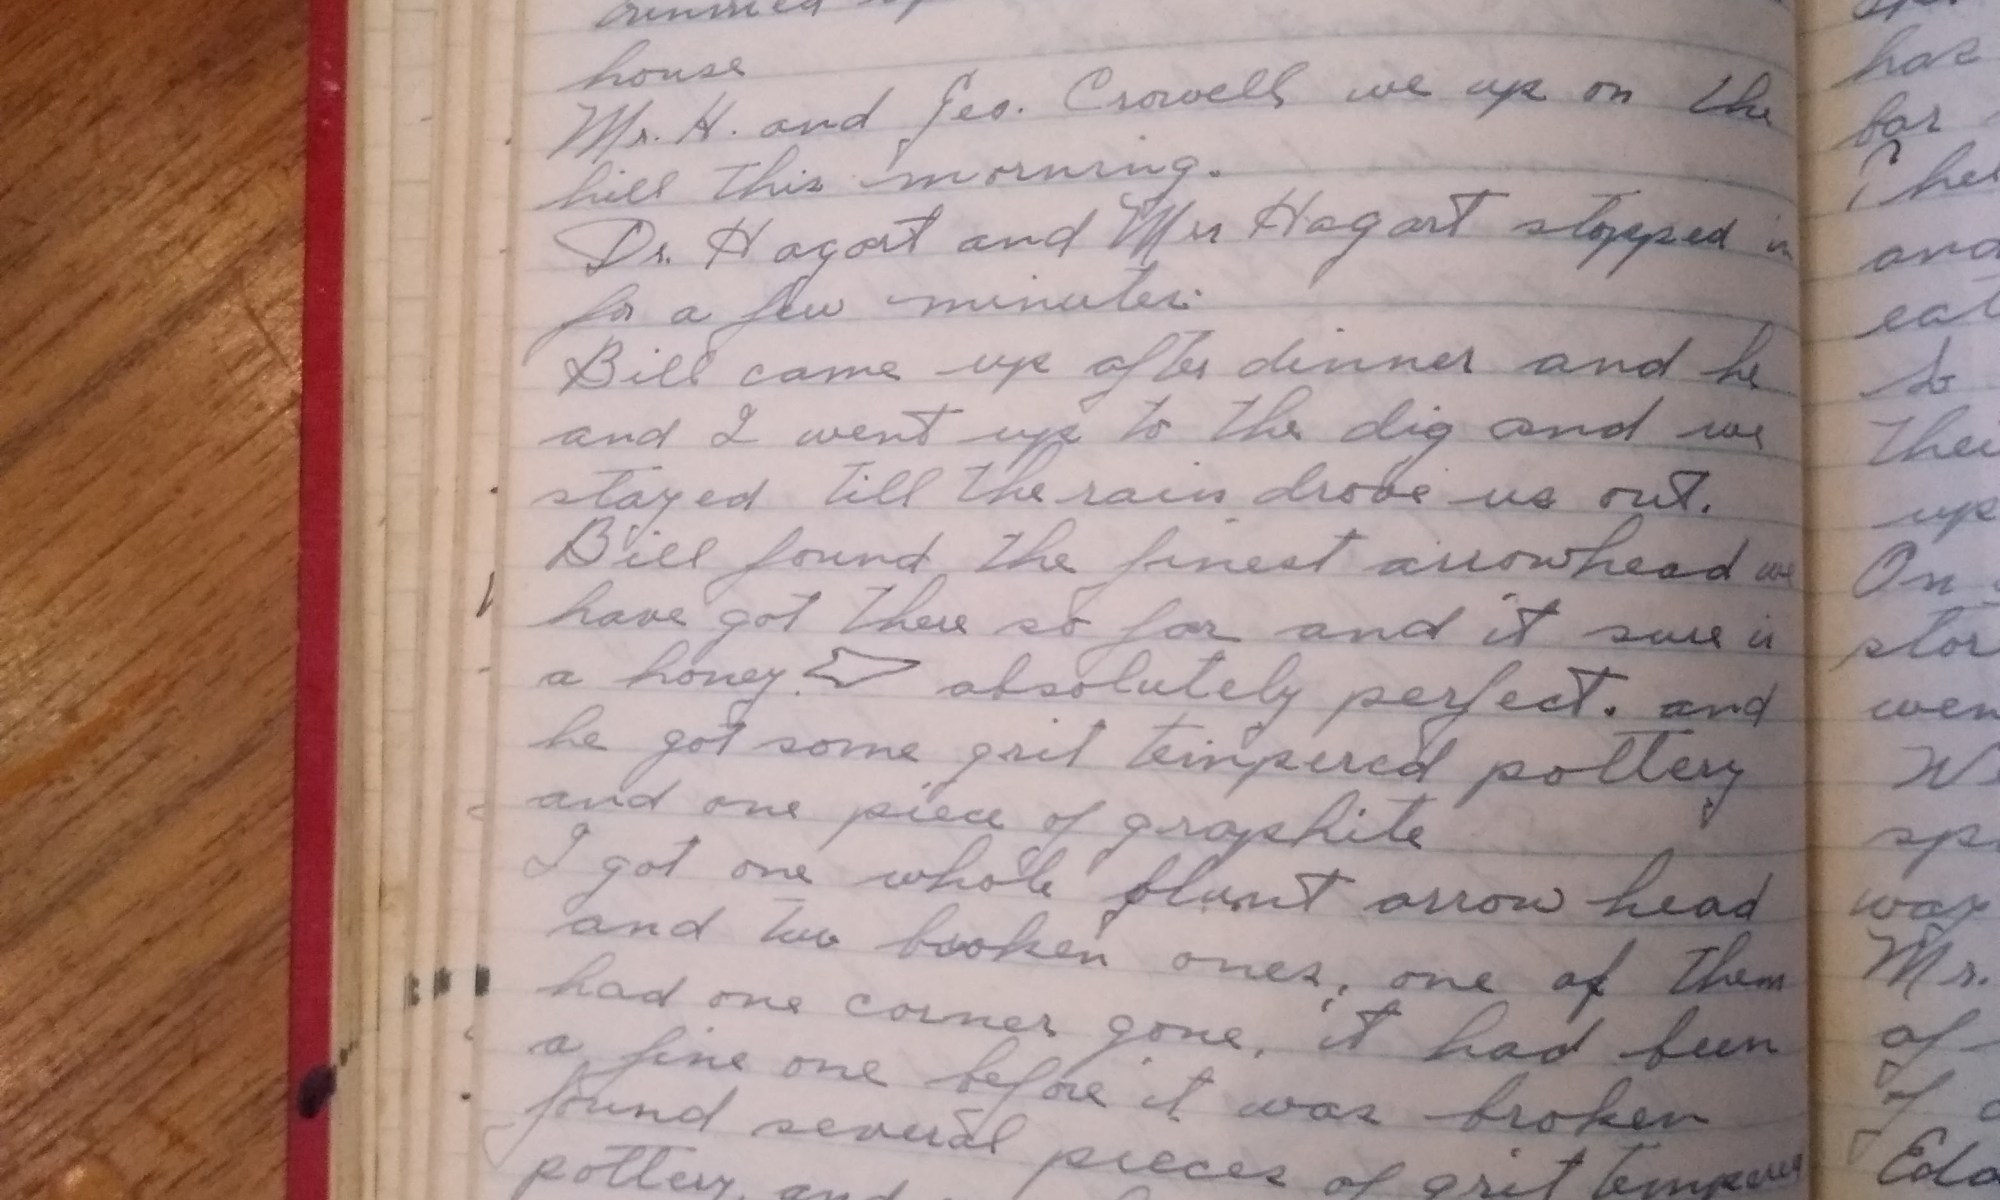 house
Mr. H. and Geo. Crowell we up on the
hill this morning.
Dr. Hagart and Mrs Hagart stopped in
for a few minutes.
Bill came up after dinner and he
and I went up to the dig and we
stayed till the rain drove us out.
Bill found the finest arrowhead we
have got there so far and it sure is
a honey. absolutely perfect. and
he got some grit tempered pottery
and one piece of graphite
I got one whole blunt arrow head
and two broken ones, one of them
had one corner gone, it had been
a fine one before it was broken
found several pieces of grit tempered
pottery and
has
for
and
eat
so
up
On
Mr.
of
of